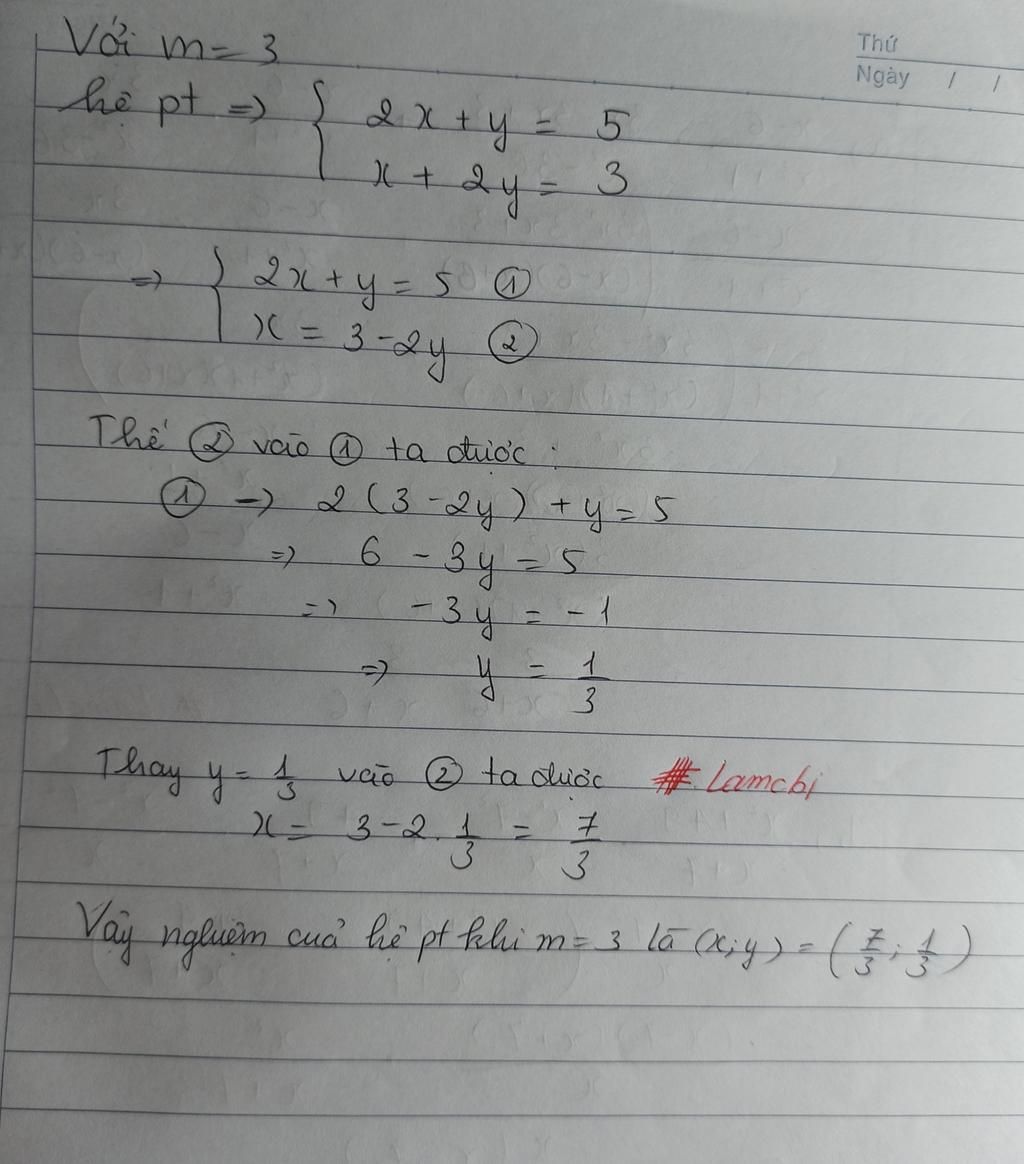 Với m = 3
Thứ
Ngày / /
hệ pt => { 2x + y = 5
x + 2y = 3
=> { 2x + y = 5 ①
x = 3 - 2y ②
Thế ② vào ① ta được :
① → 2 (3 - 2y) + y = 5
=> 6 - 3y = 5
=> -3y = -1
=> y = 1/3
Thay y = 1/3 vào ② ta được # Lamchi
x = 3 - 2. 1/3 = 7/3
Vậy nghiệm cuả hệ pt khi m = 3 là (x;y) = (7/3; 1/3)